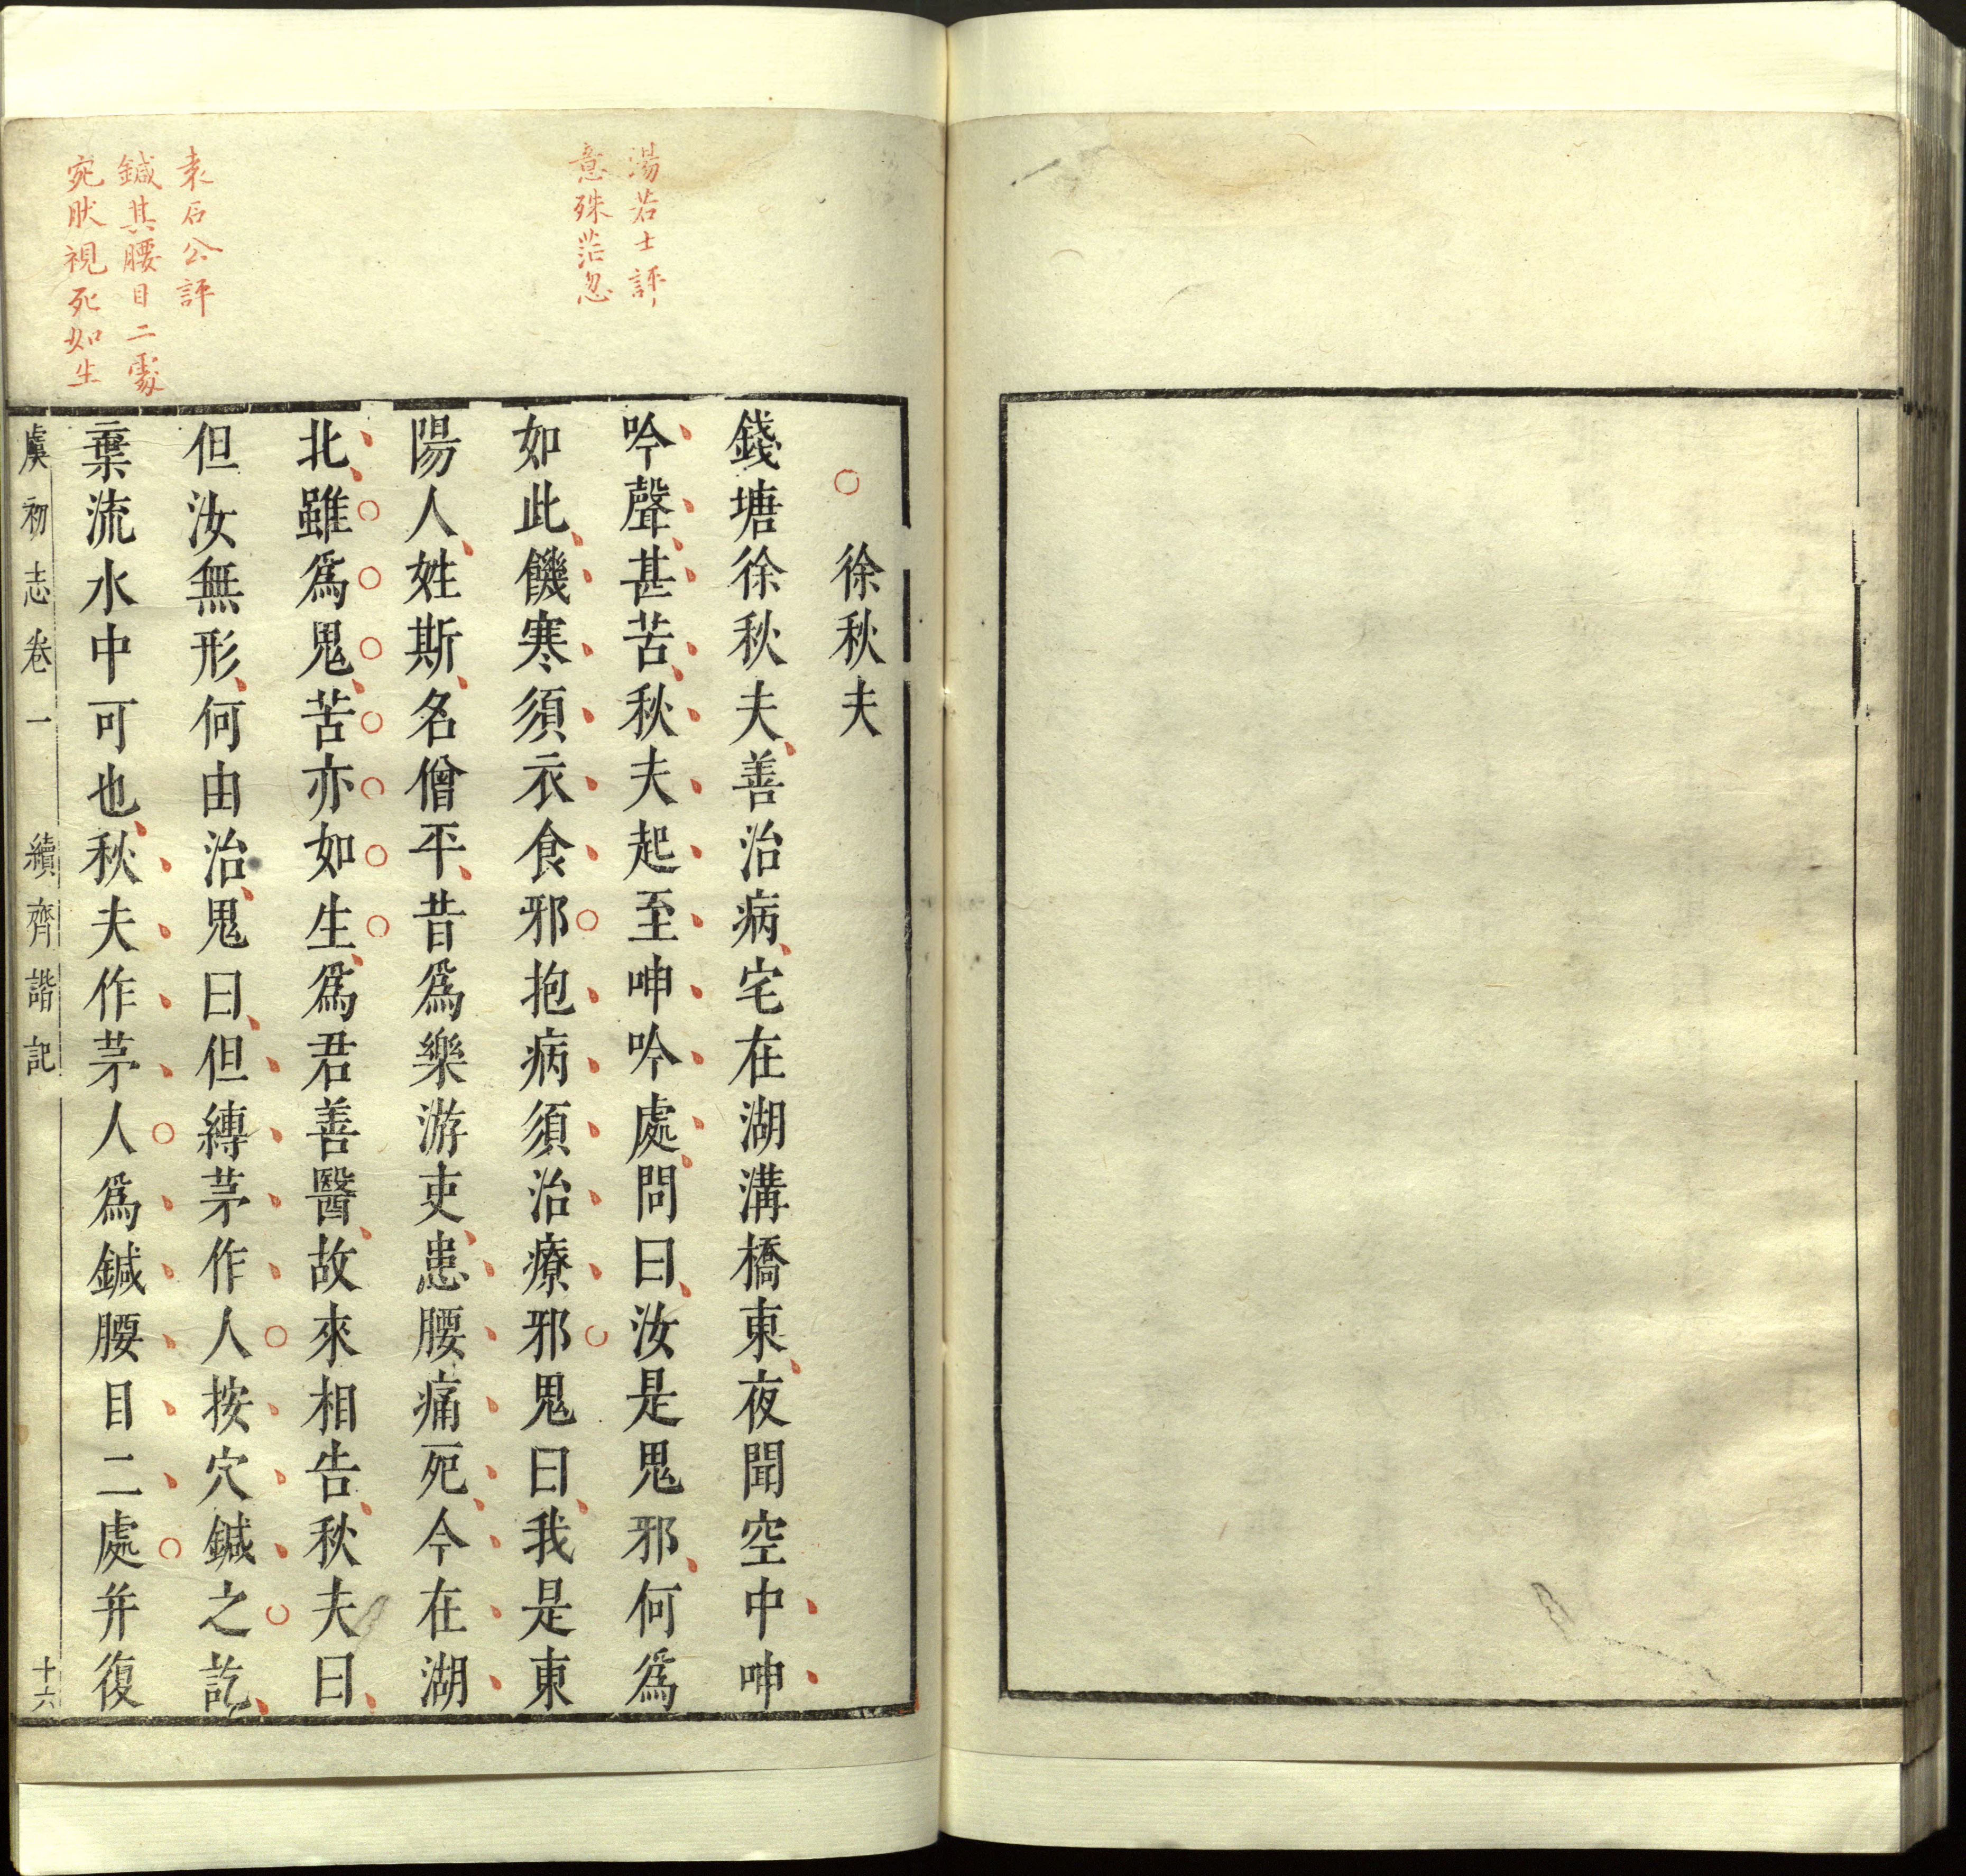 湯若士評
意殊茫忽
袁石公評
鍼其腰目二處
宛肰視死如生
徐秋夫
錢塘徐秋夫善治病宅在湖溝橋東夜聞空中呻
吟聲甚苦秋夫起至呻吟處問曰汝是鬼邪何爲
如此饑寒須衣食邪抱病須治療邪鬼曰我是東
陽人姓斯名僧平昔爲樂游吏患腰痛死今在湖
北雖爲鬼苦亦如生爲君善醫故來相告秋夫曰
但汝無形何由治鬼曰但縛茅作人按穴鍼之訖
棄流水中可也秋夫作茅人爲鍼腰目二處并復
虞初志卷一 續齊諧記 十六